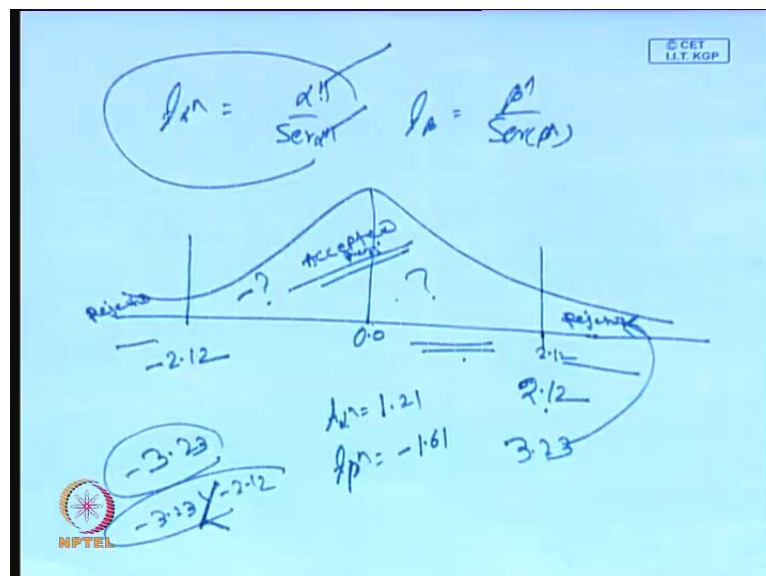 © CET
I.I.T. KGP
tα^ = α^ / Ser α^ tβ = β^ / Ser(β^)
ACCEPTED
-? ?
Reject Reject
-2.12 0.0 2.12
2.12
tα^ = 1.21
tβ^ = -1.61
3.23
-3.23
-3.23 -2.12
NPTEL